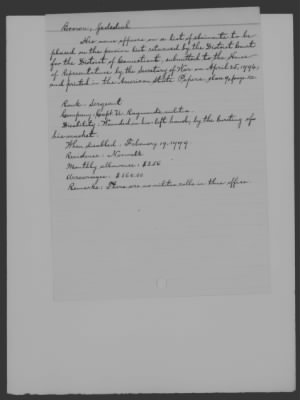 Brown, Jedediah
His name appears on a list of claimants to be
placed on the pension list returned by the District Court
for the District of Connecticut, submitted to the House
of Representatives by the Secretary of War on April 25, 1794,
and printed in the American State Papers, class 9, page
Rank: Sergeant
Company: Capt U. Raymond's militia
Disability: Wounded in his left hand, by the bursting of
his musket
When disabled: February 19, 1779
Residence: Norwalk
Monthly allowance:
Arrearages:
Remarks: There are no militia rolls in this office